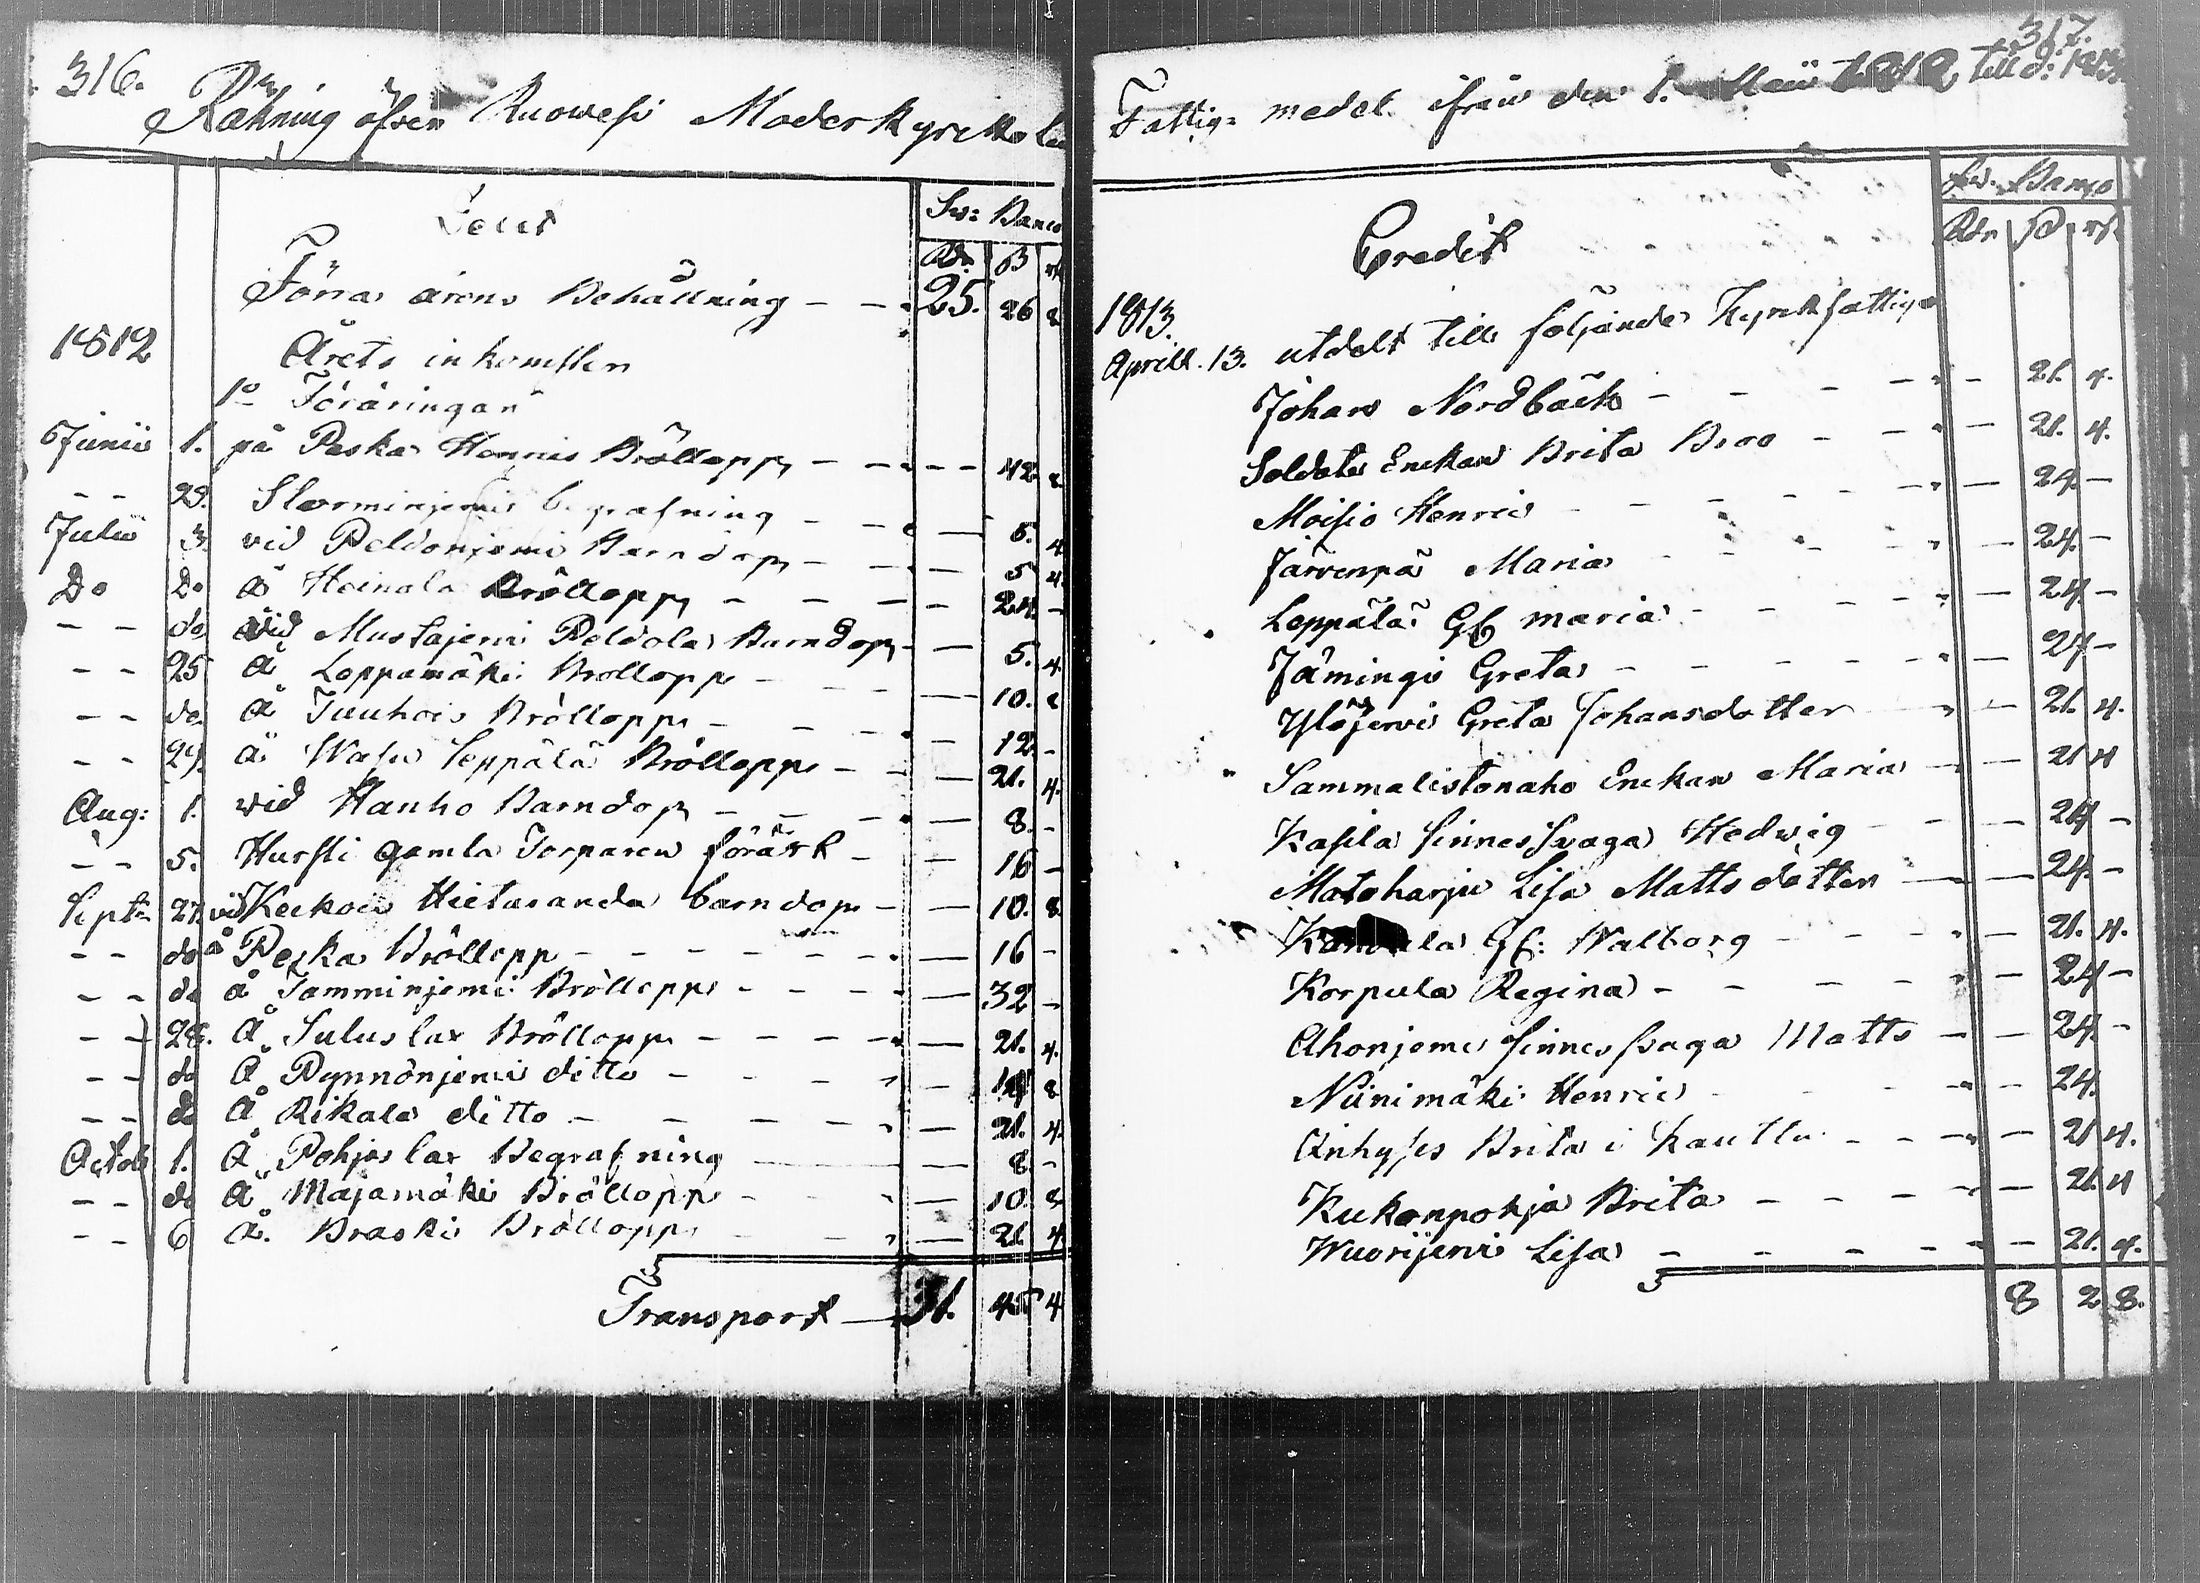 316.
Räkning öfwer Ruowesi Moderkyrko
Debet
Sw: Banco
Rdr ß rs
Förra årens Behållning - - 25. 26 8
1812
Årets inkomster
1o Föräringar
Junii 1. på Peska Hennis Bröllopp - - - 42 8
- - 29. begrafning - - - 5. 4
Julii 3 vid Peldonjemi Barndop - - - 5 4.
Do Do å Heinola Bröllopp - - - 24. -
- - do vid Mustajerwi Peldola Barndop - 5. 4.
- - 25 å Leppamäki Bröllopp - - - 10. 8
- - do. å Tuuhois Bröllopp - - - 12 -
- - 29. å Wasu Seppälä Bröllopp - - - 21. 4.
Aug: 1. vid Hanho Barndop - - - 8. -
- - 5. Hursti gamla Torparen förärt - - 16 -
Septr 27. vid Keckois Hietaranda barndop - - 10. 8
- - do å Peska Bröllopp - - - 16 -
- - do å Tamminjemi Bröllopp - - - 32 -
- - 28. å Suluslax Bröllopp - - - 21. 4.
- - do å Pynnönjemi ditto - - - 8
- - do å Rikala ditto - - - 21. 4.
Octob 1. å Pohjaslax Begrafning - 8 -
- - do å Majamäki Bröllopp - - - 10. 8
- - 6 å Braski Bröllopp - - - 21 4
Transport - 31. 45 4
317.
Fattig- medel ifrån den 1. Maii 1812 till d: 1813
Sw. Banco
Rdr ß rs
Credit
1813.
Aprill. 13. utdelt till följande Kyrkfattige
Johan Nordbäck - - - 21. 4.
Soldats Enckan Brita Broo - - - 21. 4.
Moisio Henric - - - 24. -
Järvenpä Maria - - - 24. -
Leppälä Gf maria - - - 24 -
Jämingi Greta - - - 24 -
Ylöjerwi Greta Johansdotter - - 21. 4.
Sammalistonaho Enckan Maria - - 21 4
Kasila sinnessvaga Hedwig - - 24 -
Matoharju Lisa Mattsdotter - - 24. -
Gf: Walborg - - - 21. 4.
Korpula Regina - - - 24 -
Ahonjemi sinnessvaga Matts - - 24. -
Niinimäki Henric - - - 24.
Inhyses Brita i Kauttu - - - 21 4.
Kukonpohja Brita - - - 21. 4
Wuorijerwi Lisa - - - 21. 4.
8 2 8.